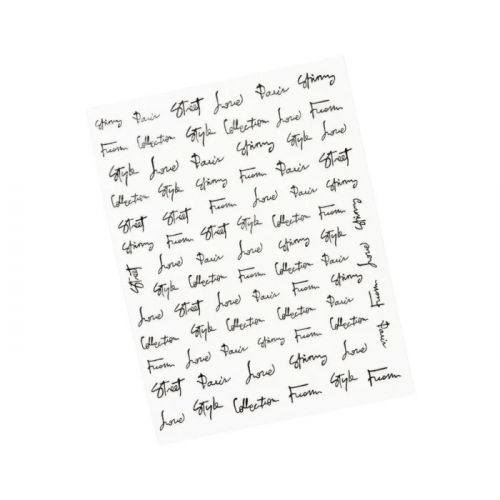 Paris Street Love Paris
From Collection Style Collection Love From
Style Love Paris Style Love
Collection Style Love Paris Street
Street Street From Love Paris From
Collection From Street Style Collection From
Street Love Paris Love Street Style Love
Style Collection From Collection Paris From
Love Street Love Paris Street
Collection Style Collection From Collection Paris
From Love Collection From Collection
Street Paris Love Love
Love Style Collection From Style From